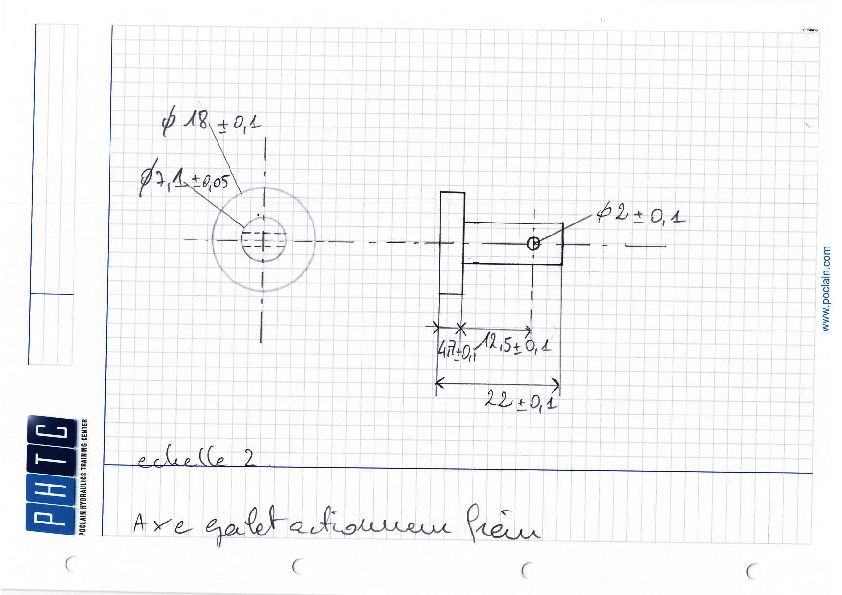 φ 18 ± 0,1
φ7,1 ±0,05
φ2 ± 0,1
4,7±0,1
12,5±0,1
22 ±0,1
echelle 2
Axe galet actionnem frein
PHTC
POCLAIN HYDRAULICS TRAINING CENTER
www.poclain.com